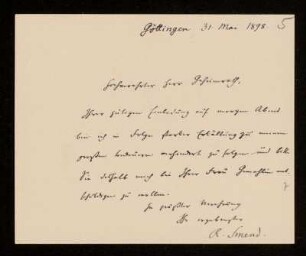 Göttingen 31 Mai 1898. 5
Hochverehrter Herr Geheimerat.
Ihrer gütigen Einladung auf morgen Abend
bin ich in Folge starker Erkältung zu meinem
großen Bedauern verhindert zu folgen und bitte
Sie deshalb mich bei Ihrer Frau Gemahlin ent-
schuldigen zu wollen.
In größter Verehrung
Ihr ergebenster
R. Smend.